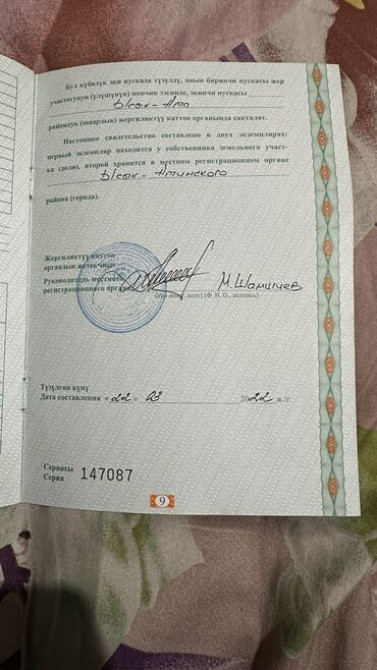 Бул күбөлүк эки нускада түзүлдү, анын биринчи нускасы жер
участогунун (үлүшүнүн) менчик ээсинде, экинчи нускасы
Ысык-Ата
райондук (шаардык) жергиликтүү каттоо органында сакталат.
Настоящее свидетельство составлено в двух экземплярах:
первый экземпляр находится у собственника земельного участ-
ка (доли), второй хранится в местном регистрационном органе
Ысык-Атинского
района (города).
Жергиликтүү каттоо
органдын жетекчиси
Руководитель местного
регистрационного органа
М. Шамшиев
(Ф. И. О., подпись)
Түзүлгөн күнү
Дата составления «22» 03 2022 ж./г.
Сериясы
Серия 147087
9